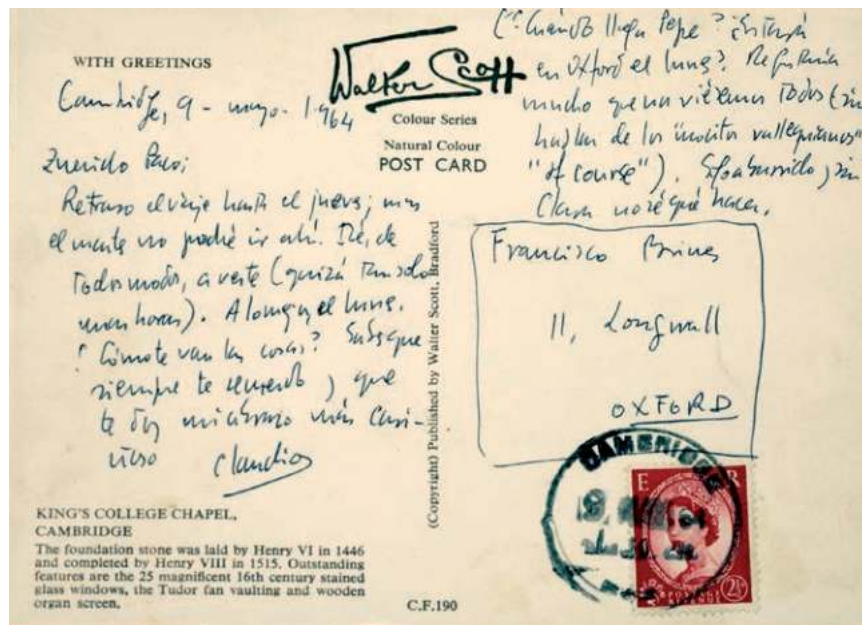 WITH GREETINGS
Walter Scott
Colour Series
Natural Colour
POST CARD
Cambridge, 9 - mayo - 1964
Querido Paco:
Retraso el viaje hasta el jueves;
el martes no podré ir ahí. Iré, de
todos modos, a verte (quizá tan solo
unas horas). A lo mejor el lunes.
¿Cómo te van las cosas? Sabes que
siempre te recuerdo y que
te doy mi abrazo más cari-
ñoso Claudio
¿Cuándo llega Pepe? ¿Estará
en Oxford el lunes? Me gustaría
mucho que nos viéramos todos (sin
hablar de los "mocitos vallequianos"
"of course"). Estoy aburrido, sin
Clara no sé qué hacer.
Francisco Brines
11, Longwall
OXFORD
(Copyright) Published by Walter Scott, Bradford
KING'S COLLEGE CHAPEL,
CAMBRIDGE
The foundation stone was laid by Henry VI in 1446
and completed by Henry VIII in 1515. Outstanding
features are the 25 magnificent 16th century stained
glass windows, the Tudor fan vaulting and wooden
organ screen.
C.F.190
CAMBRIDGE
E R
2½